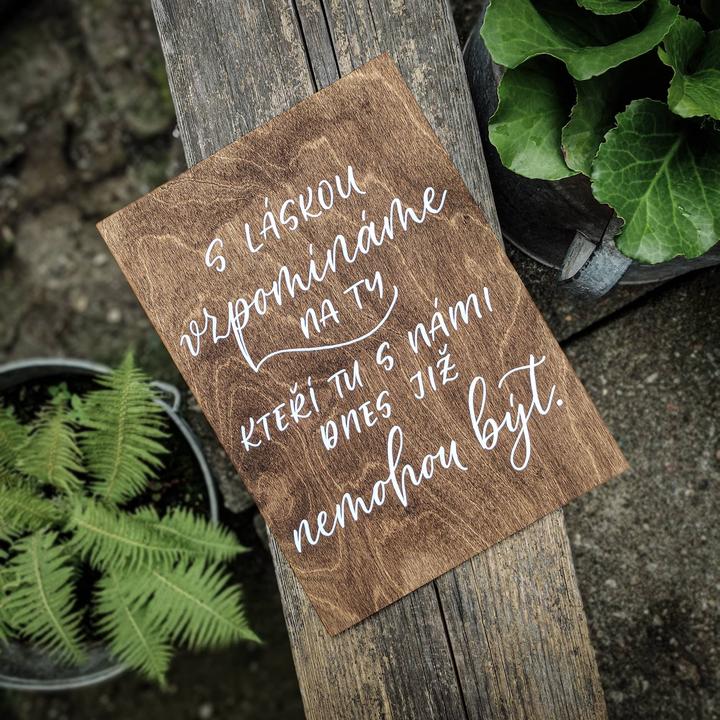 S LÁSKOU
vzpomínáme
NA TY
KTEŘÍ TU S NÁMI
DNES JIŽ
nemohou být.